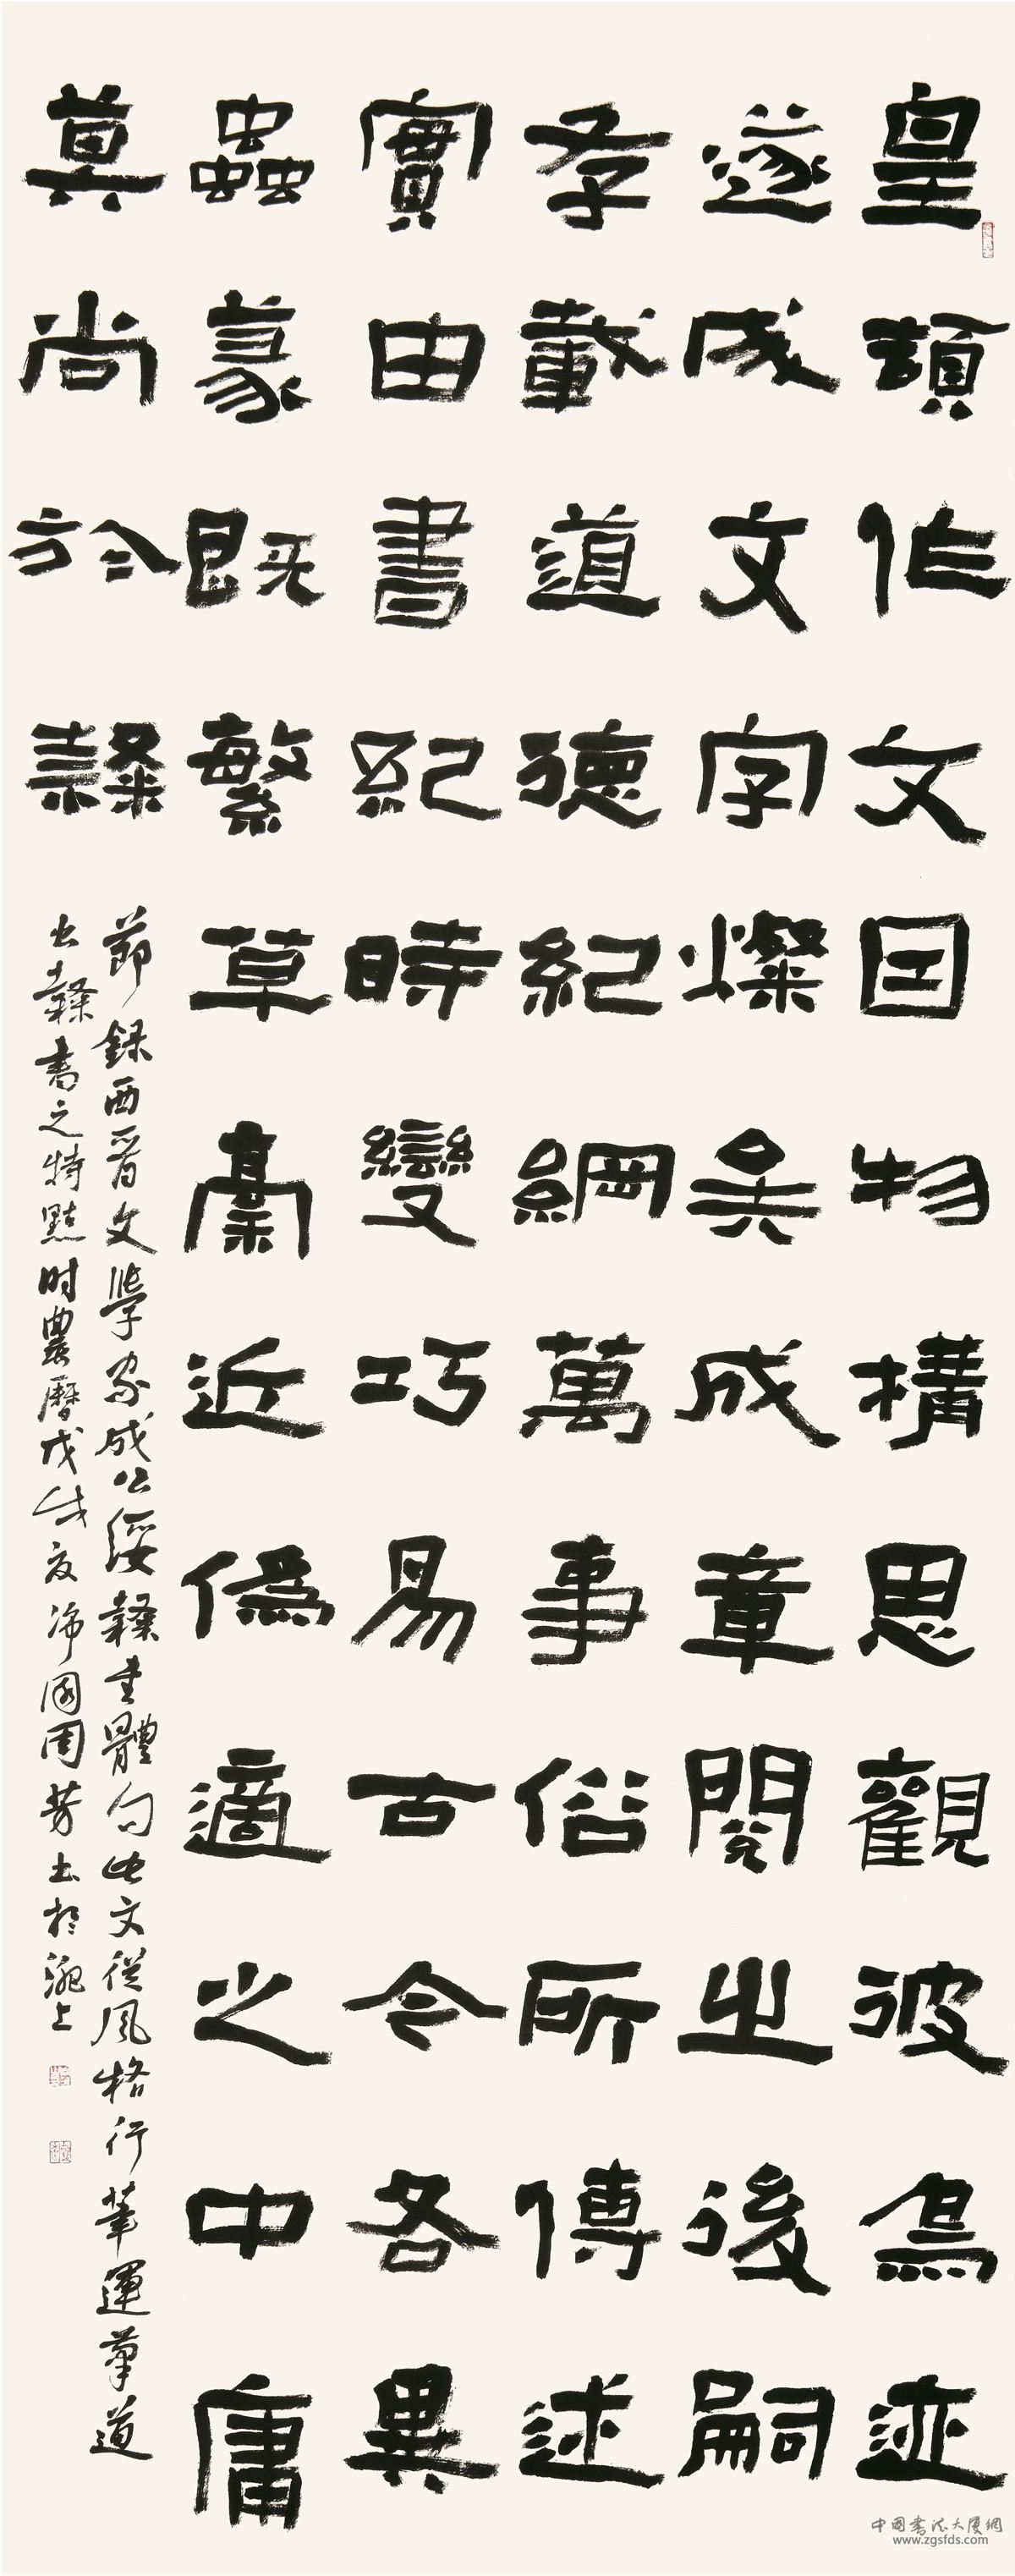 皇頡作文因物構思觀彼鳥迹
遂成文字燦矣成章閱之後嗣
存載道德紀綱萬事俗所傳述
實由書紀時變巧易古今各異
蟲篆既繁草藁近偽適之中庸
莫尚於隸
節録西晉文學家成公綏隸書體句此文從風格行筆運筆道
出隸書之特點时農曆戊戌夏沛國周芳书於滬上
中国书法大厦網
www.zgsfds.com